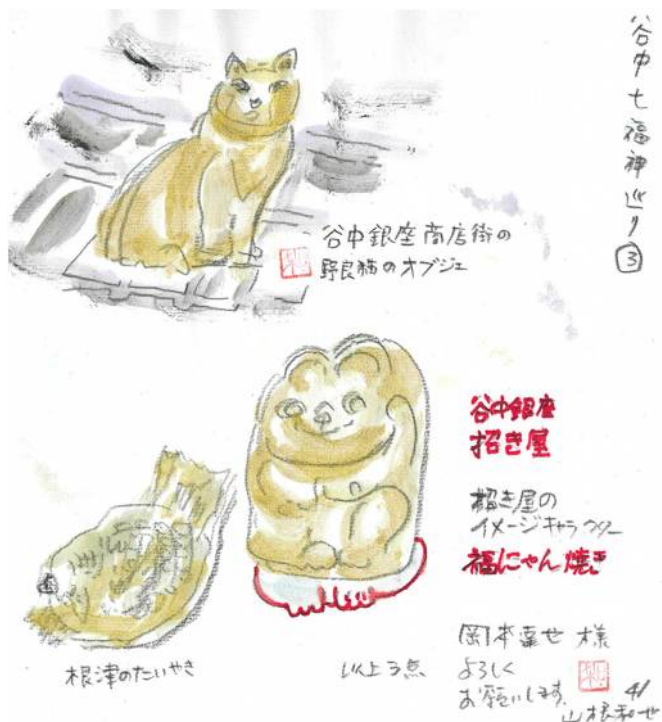 谷中七福神巡り③
谷中銀座商店街の
野良猫のオブジェ
谷中銀座
招き屋
招き屋の
イメージキャラクター
福にゃん焼き
根津のたいやき
以上3点
様
よろしく
お願いします。